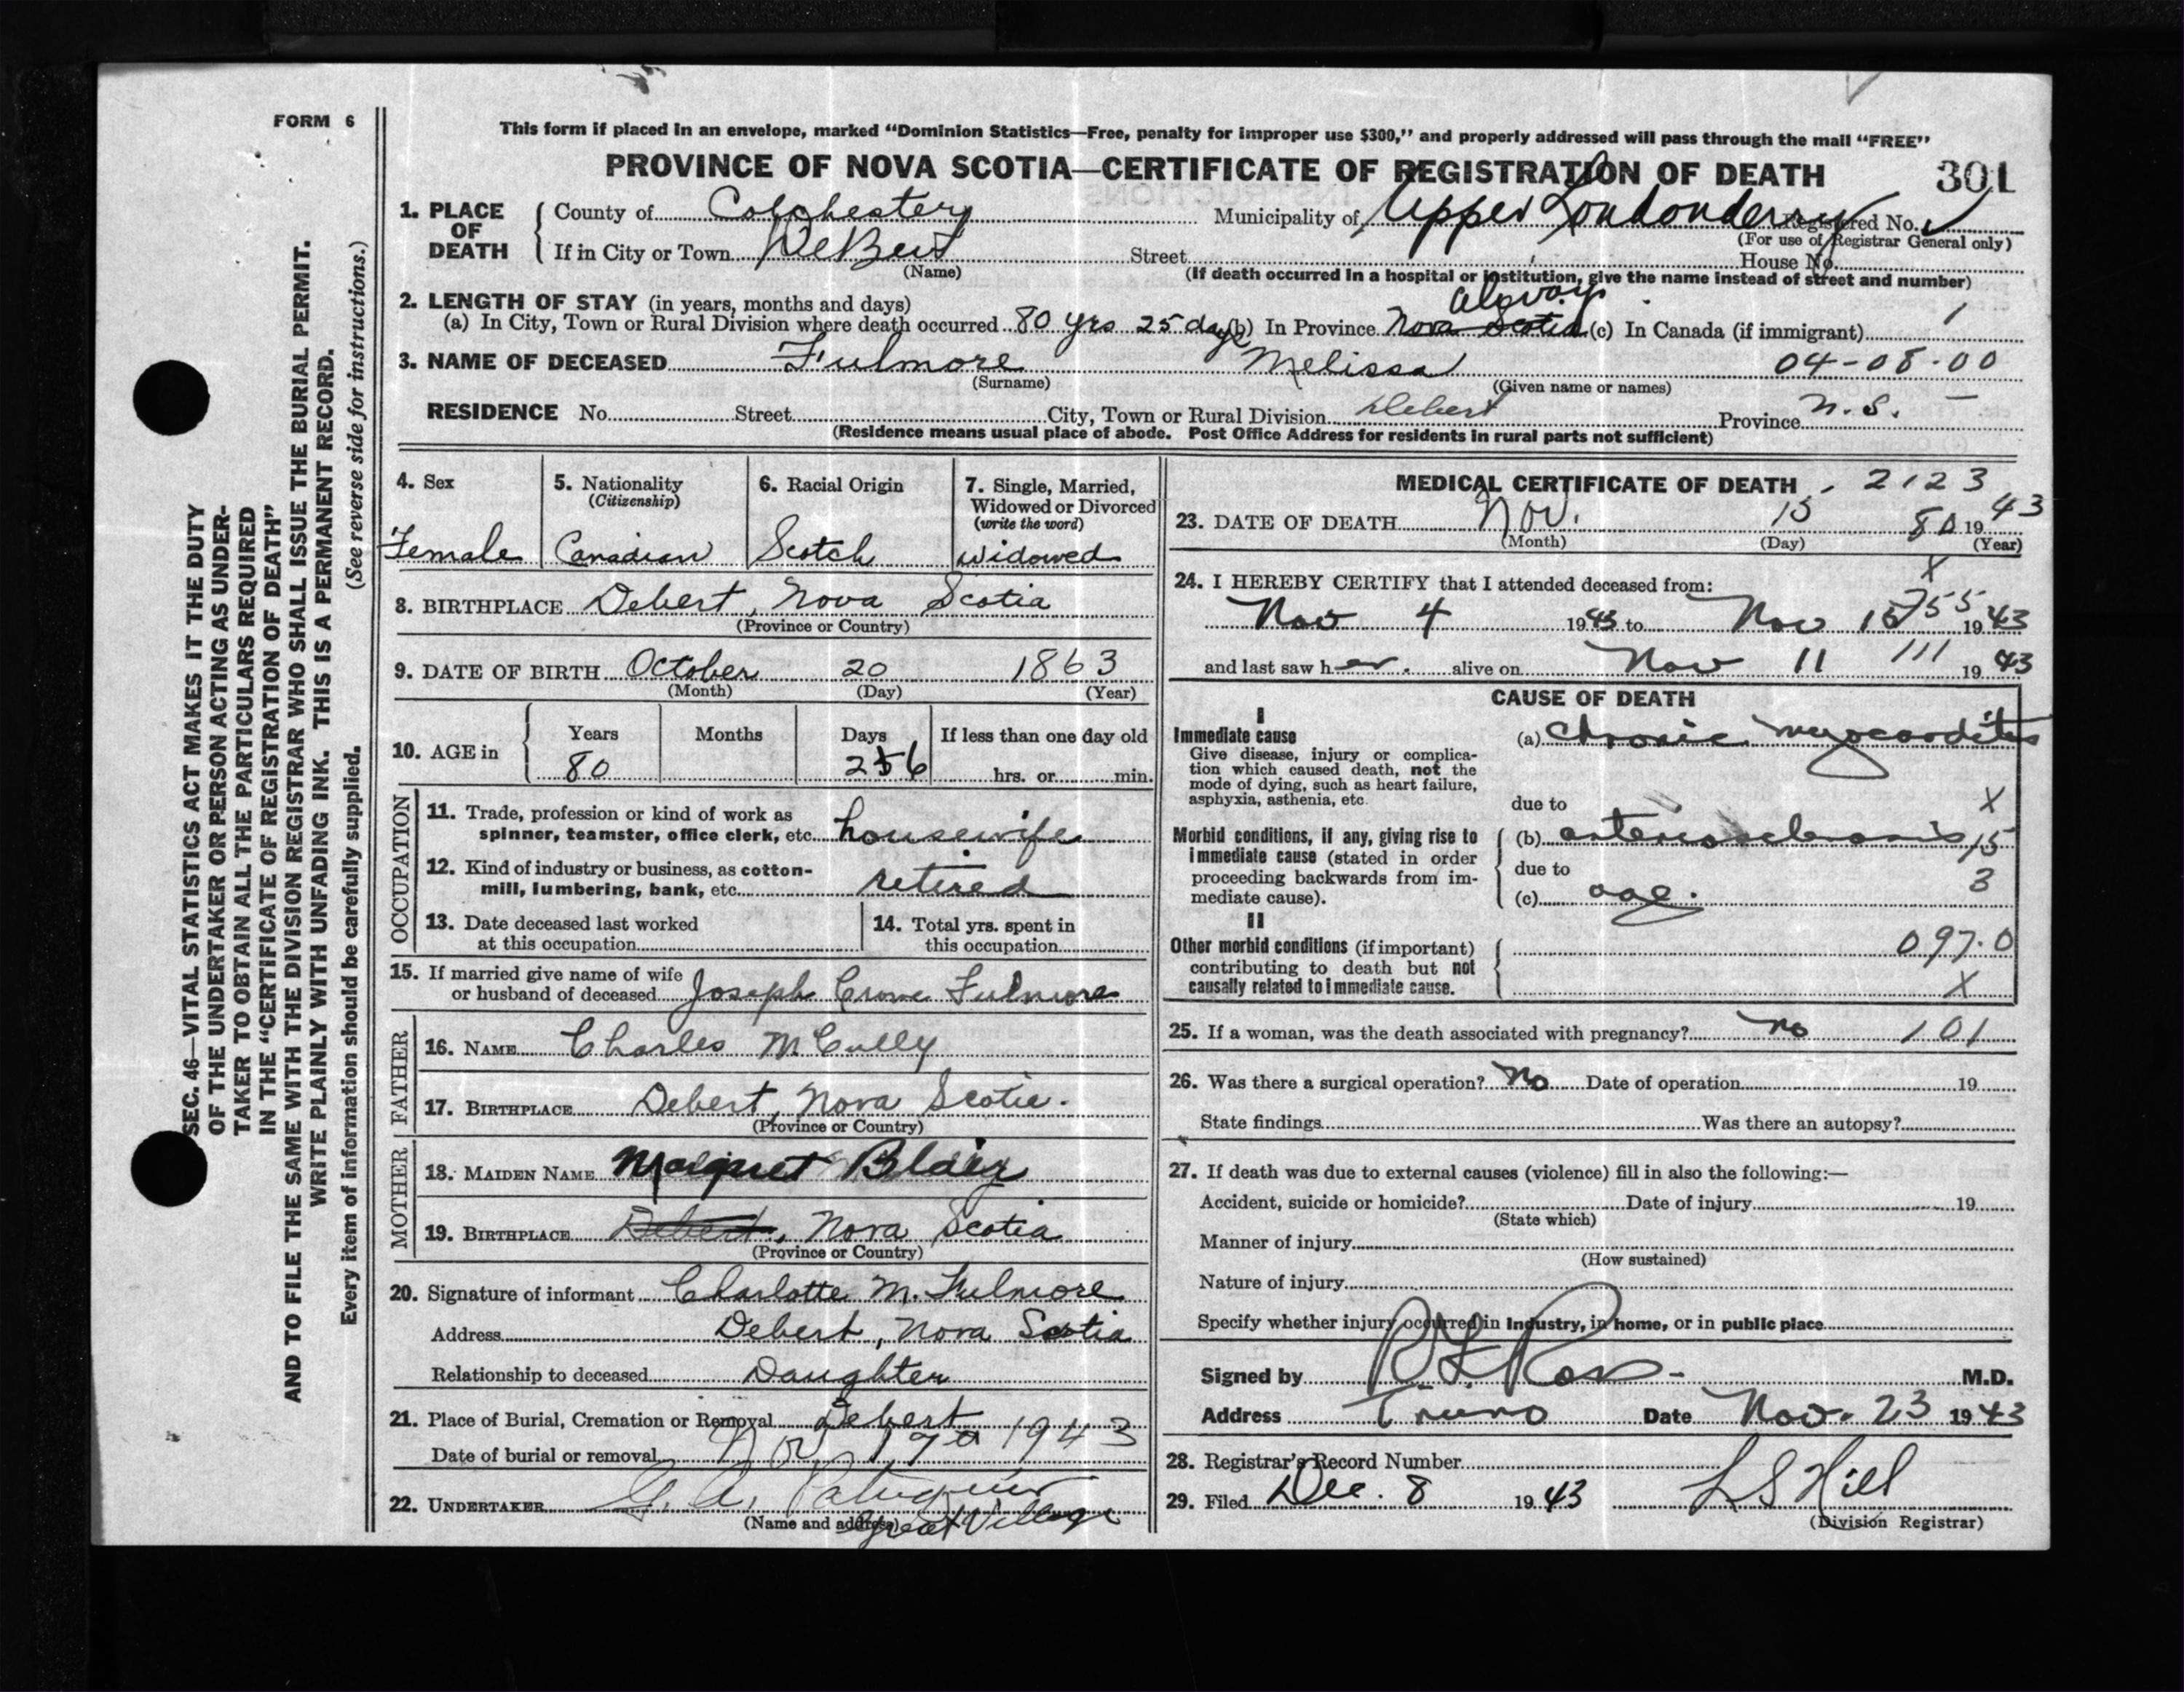 FORM 6
This form if placed in an envelope, marked “Dominion Statistics—Free, penalty for improper use $300,” and properly addressed will pass through the mail “FREE”
PROVINCE OF NOVA SCOTIA—CERTIFICATE OF REGISTRATION OF DEATH
301
1. PLACE OF DEATH
County of Colchester Municipality of Upper Londonderry Registered No.
(For use of Registrar General only)
If in City or Town DeBert Street House No.
(Name) (If death occurred in a hospital or institution, give the name instead of street and number)
2. LENGTH OF STAY (in years, months and days)
always 1
(a) In City, Town or Rural Division where death occurred 80 yrs 25 days (b) In Province Nova Scotia (c) In Canada (if immigrant)
3. NAME OF DECEASED Fulmore Melissa 04-08-00
(Surname) (Given name or names)
RESIDENCE No. Street City, Town or Rural Division Debert Province N.S. –
(Residence means usual place of abode. Post Office Address for residents in rural parts not sufficient)
4. Sex
Female
5. Nationality
(Citizenship)
Canadian
6. Racial Origin
Scotch
7. Single, Married,
Widowed or Divorced
(write the word)
widowed
8. BIRTHPLACE Debert, Nova Scotia
(Province or Country)
9. DATE OF BIRTH October 20 1863
(Month) (Day) (Year)
10. AGE in
Years Months Days If less than one day old
80 hrs. or min.
OCCUPATION
11. Trade, profession or kind of work as
spinner, teamster, office clerk, etc. housewife
12. Kind of industry or business, as cotton-
mill, lumbering, bank, etc. retired
13. Date deceased last worked
at this occupation
14. Total yrs. spent in
this occupation
15. If married give name of wife
or husband of deceased Joseph Crowe Fulmore
FATHER
16. NAME Charles McCully
17. BIRTHPLACE Debert, Nova Scotia.
(Province or Country)
MOTHER
18. MAIDEN NAME Margret Blair
19. BIRTHPLACE Debert, Nova Scotia
(Province or Country)
20. Signature of informant Charlotte M. Fulmore
Address Debert, Nova Scotia
Relationship to deceased Daughter
21. Place of Burial, Cremation or Removal Debert
Date of burial or removal Nov 17th 1943
22. UNDERTAKER G. A.
(Name and address) Great Village
MEDICAL CERTIFICATE OF DEATH 2123
23. DATE OF DEATH Nov. 15 80 19 43
(Month) (Day) (Year)
X
24. I HEREBY CERTIFY that I attended deceased from:
Nov 4 1943 to Nov 15 755 19 43
and last saw her alive on Nov 11 111 19 43
CAUSE OF DEATH
I
Immediate cause
Give disease, injury or complica-
tion which caused death, not the
mode of dying, such as heart failure,
asphyxia, asthenia, etc.
(a) Chronic myocarditis
due to X
Morbid conditions, if any, giving rise to
immediate cause (stated in order
proceeding backwards from im-
mediate cause).
(b) arteriosclerosis 15
due to 3
(c) age.
II
Other morbid conditions (if important)
contributing to death but not
causally related to immediate cause.
097.0
X
25. If a woman, was the death associated with pregnancy? no 101
26. Was there a surgical operation? No Date of operation 19
State findings Was there an autopsy?
27. If death was due to external causes (violence) fill in also the following:—
Accident, suicide or homicide? Date of injury 19
(State which)
Manner of injury
(How sustained)
Nature of injury
Specify whether injury occurred in Industry, in home, or in public place
Signed by R L Ross M.D.
Address Truro Date Nov. 23 1943
28. Registrar’s Record Number
29. Filed Dec. 8 1943 L S Hill
(Division Registrar)
SEC. 46—VITAL STATISTICS ACT MAKES IT THE DUTY
OF THE UNDERTAKER OR PERSON ACTING AS UNDER-
TAKER TO OBTAIN ALL THE PARTICULARS REQUIRED
IN THE “CERTIFICATE OF REGISTRATION OF DEATH”
AND TO FILE THE SAME WITH THE DIVISION REGISTRAR WHO SHALL ISSUE THE BURIAL PERMIT.
WRITE PLAINLY WITH UNFADING INK. THIS IS A PERMANENT RECORD.
Every item of information should be carefully supplied. (See reverse side for instructions.)